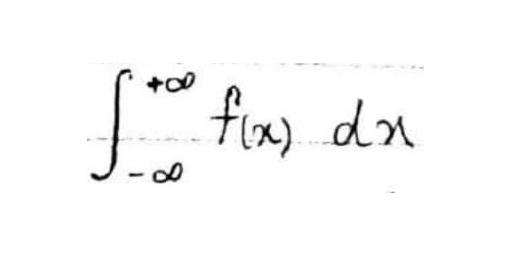 ∫_{-∞}^{+∞} f(x) dx